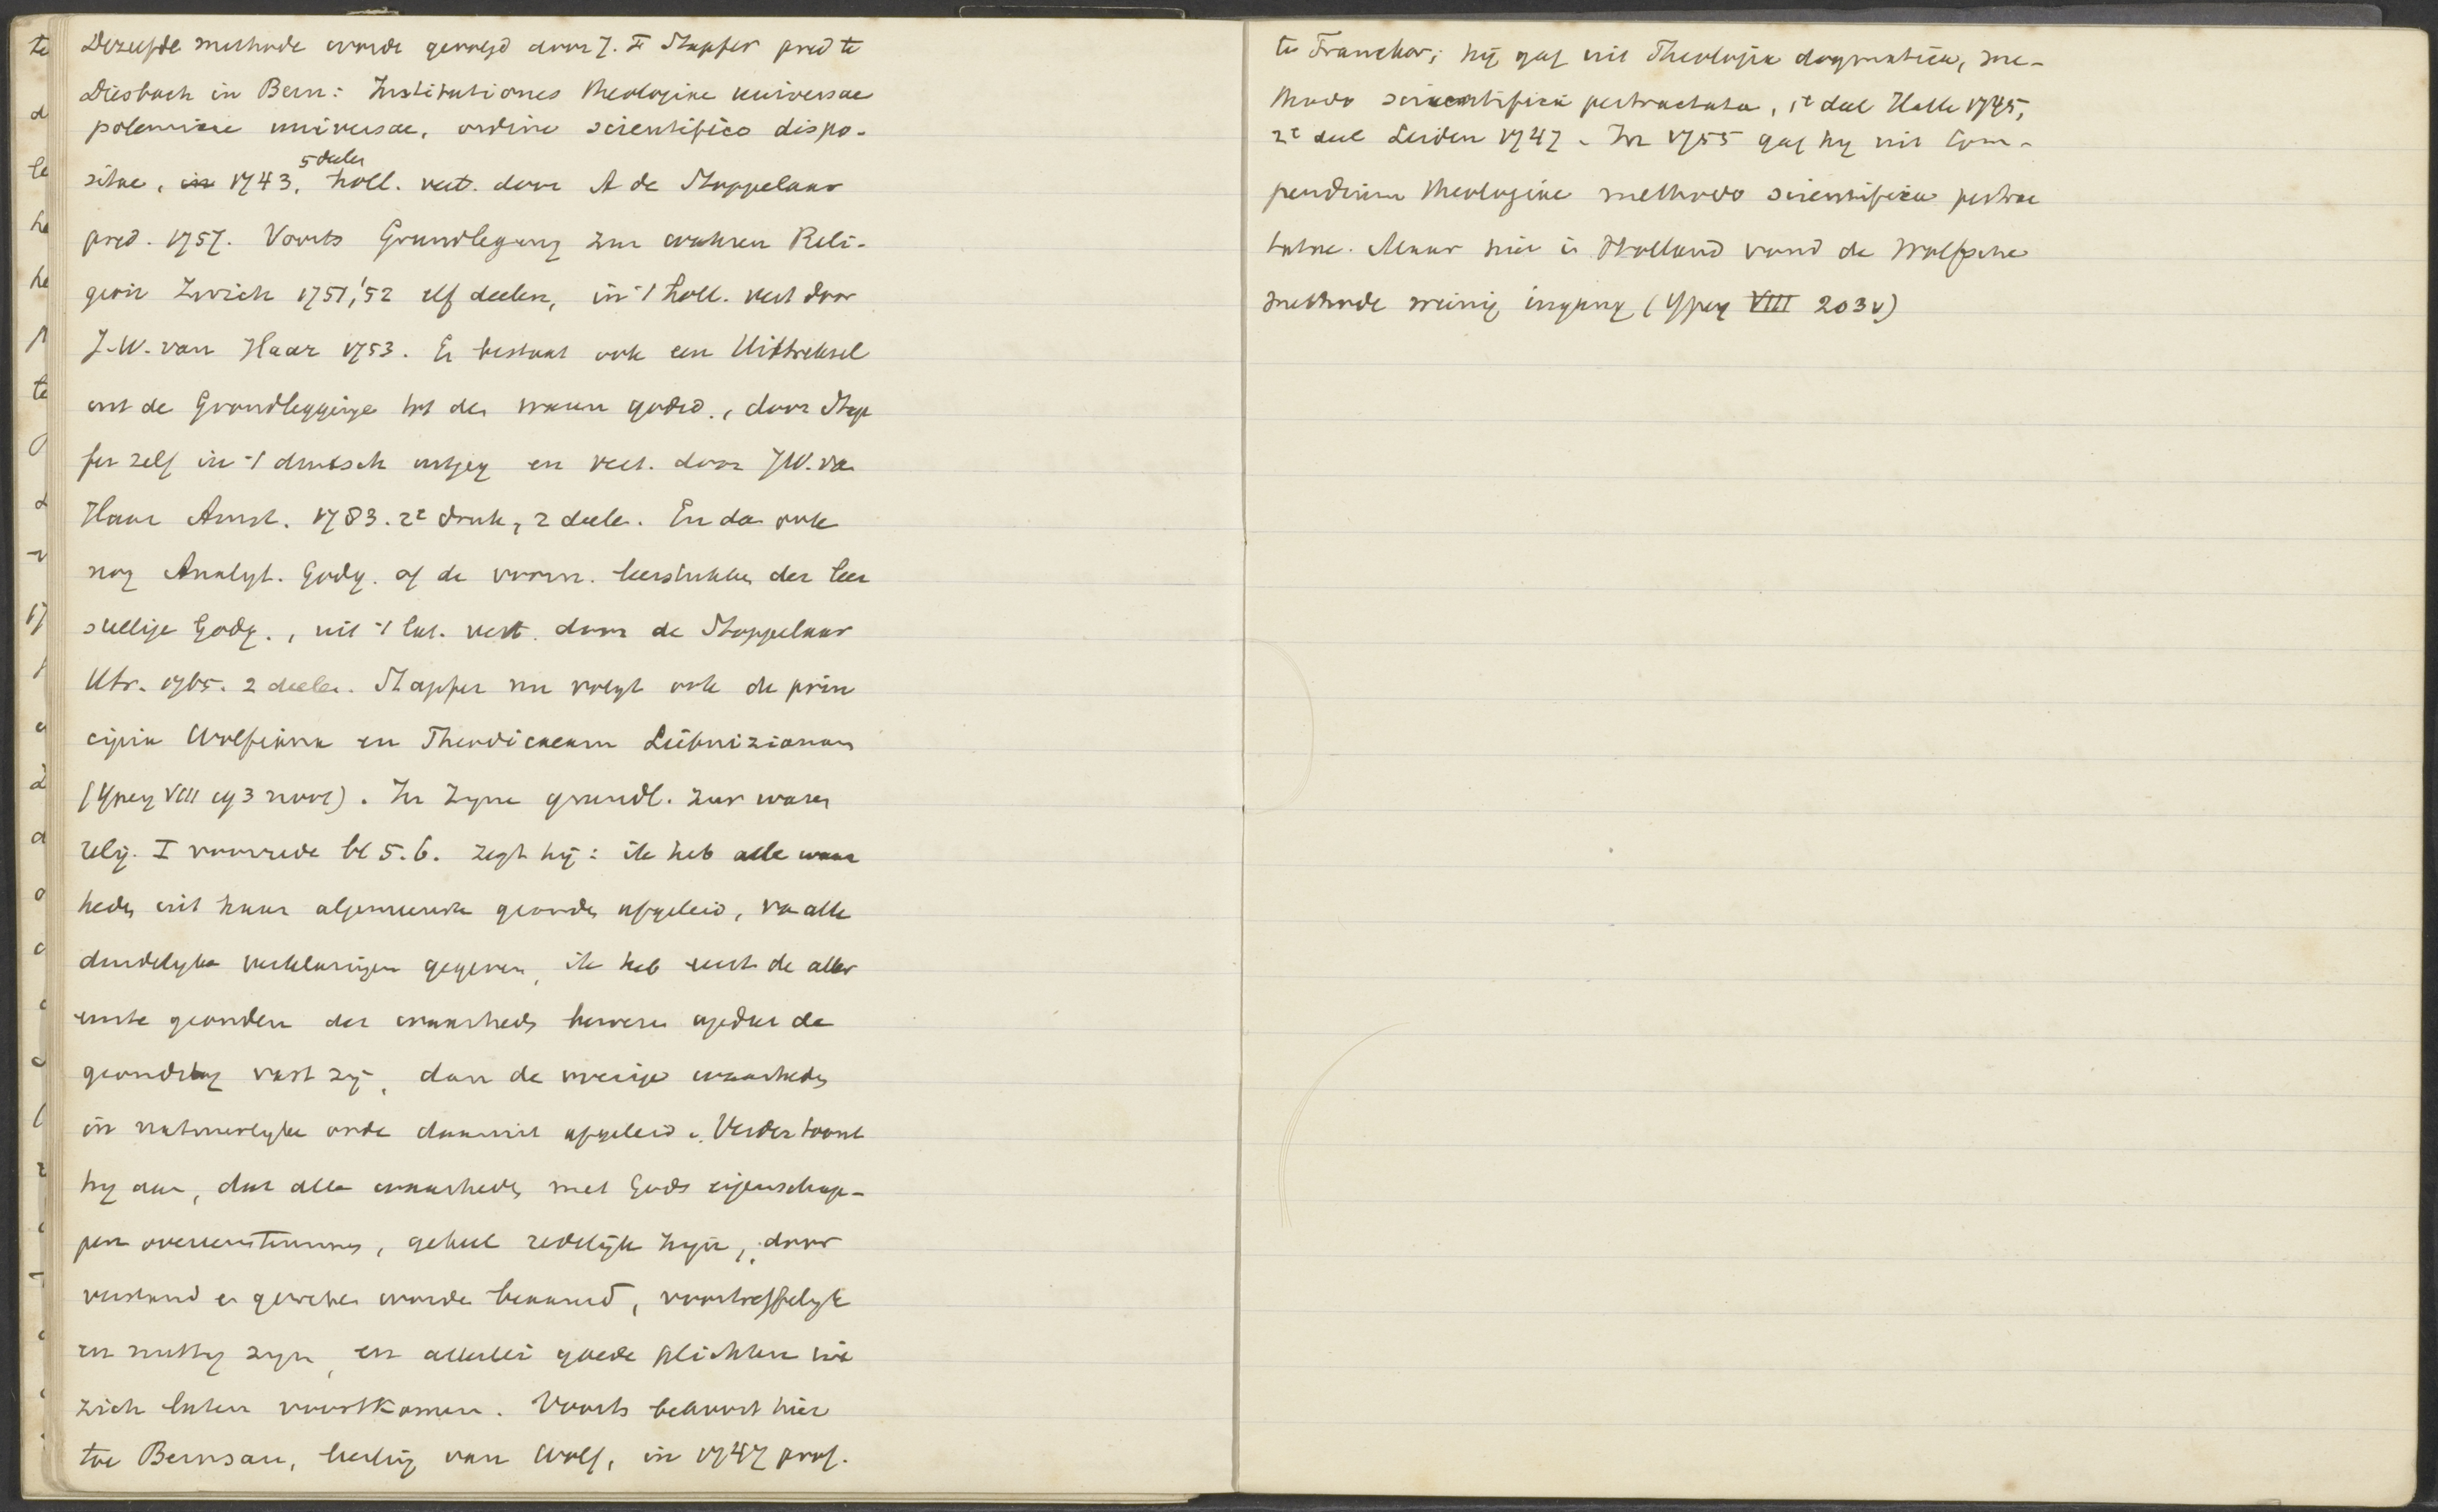 Dezelfde methode wordt gevolgd door J. F Stapfer pred te
Diesbach in Bern: Institutiones theologiae universae
polemicae universae, ordine scientifico dispo-
sitae, in 1743, 5 deelen holl. vert. door A de Stoppelaar
pred. 1757. Voorts Grundlegung zur wahren Reli-
gion Zurich 1751,'52 elf deelen, in 't holl. vert door
J. W. van Haar 1753. Er bestaat ook een Uittreksel
uit de Grondlegginge tot den waren godsd., door Stap
fer zelf in 't duitsch uitgeg en vert. door J W. va
Haar Amst. 1783. 2e druk, 2 deele. En da ook
nog Analyt. Godg. of de voorn. leerstukken der leer
stellige Godg., uit 't lat. vert. door de Stoppelaar
Utr. 1765. 2 deelen. Stapfer nu volgt ook de prin
cipia Wolfiana en Theodicaeam Leibnizianam
(Ypey VIII 193 noot). In zyne grundl. zur waren
relig. I voorrede bl 5. 6. zegt hij: ik heb alle waar
heden uit haar algemeenste gronden afgeleid, va alle
duidelyke verklaringen gegeven, ik heb eerst de aller
eerste gronden der waarheden bewezen opdat de
grondslag vast zij, dan de overige waarheden
in natuurlyke orde daaruit afgeleid. Verder toont
hy aan, dat alle waarheden met Gods eigenschap-
pen overeenstemmen, geheel redelijk zyn, door
verstand en geweten worden beaamd, voortreffelyk
en nuttig zyn, en allerlei goede plichten uit
zich laten voortkomen. Voorts behoort hier
toe Bernsau, leerling van Wolf, in 1747 prof.
te Franeker; hij gaf uit Theologia dogmatica, me-
thodo scientifica pertractata, 1e deel Halle 1745,
2e deel Leiden 1747. In 1755 gaf hy uit Com-
pendium theologiae methodo scientifica pertrac
tatae. Maar hier in Holland vond de Wolfsche
methode weinig ingang (Ypey VIII 203v)